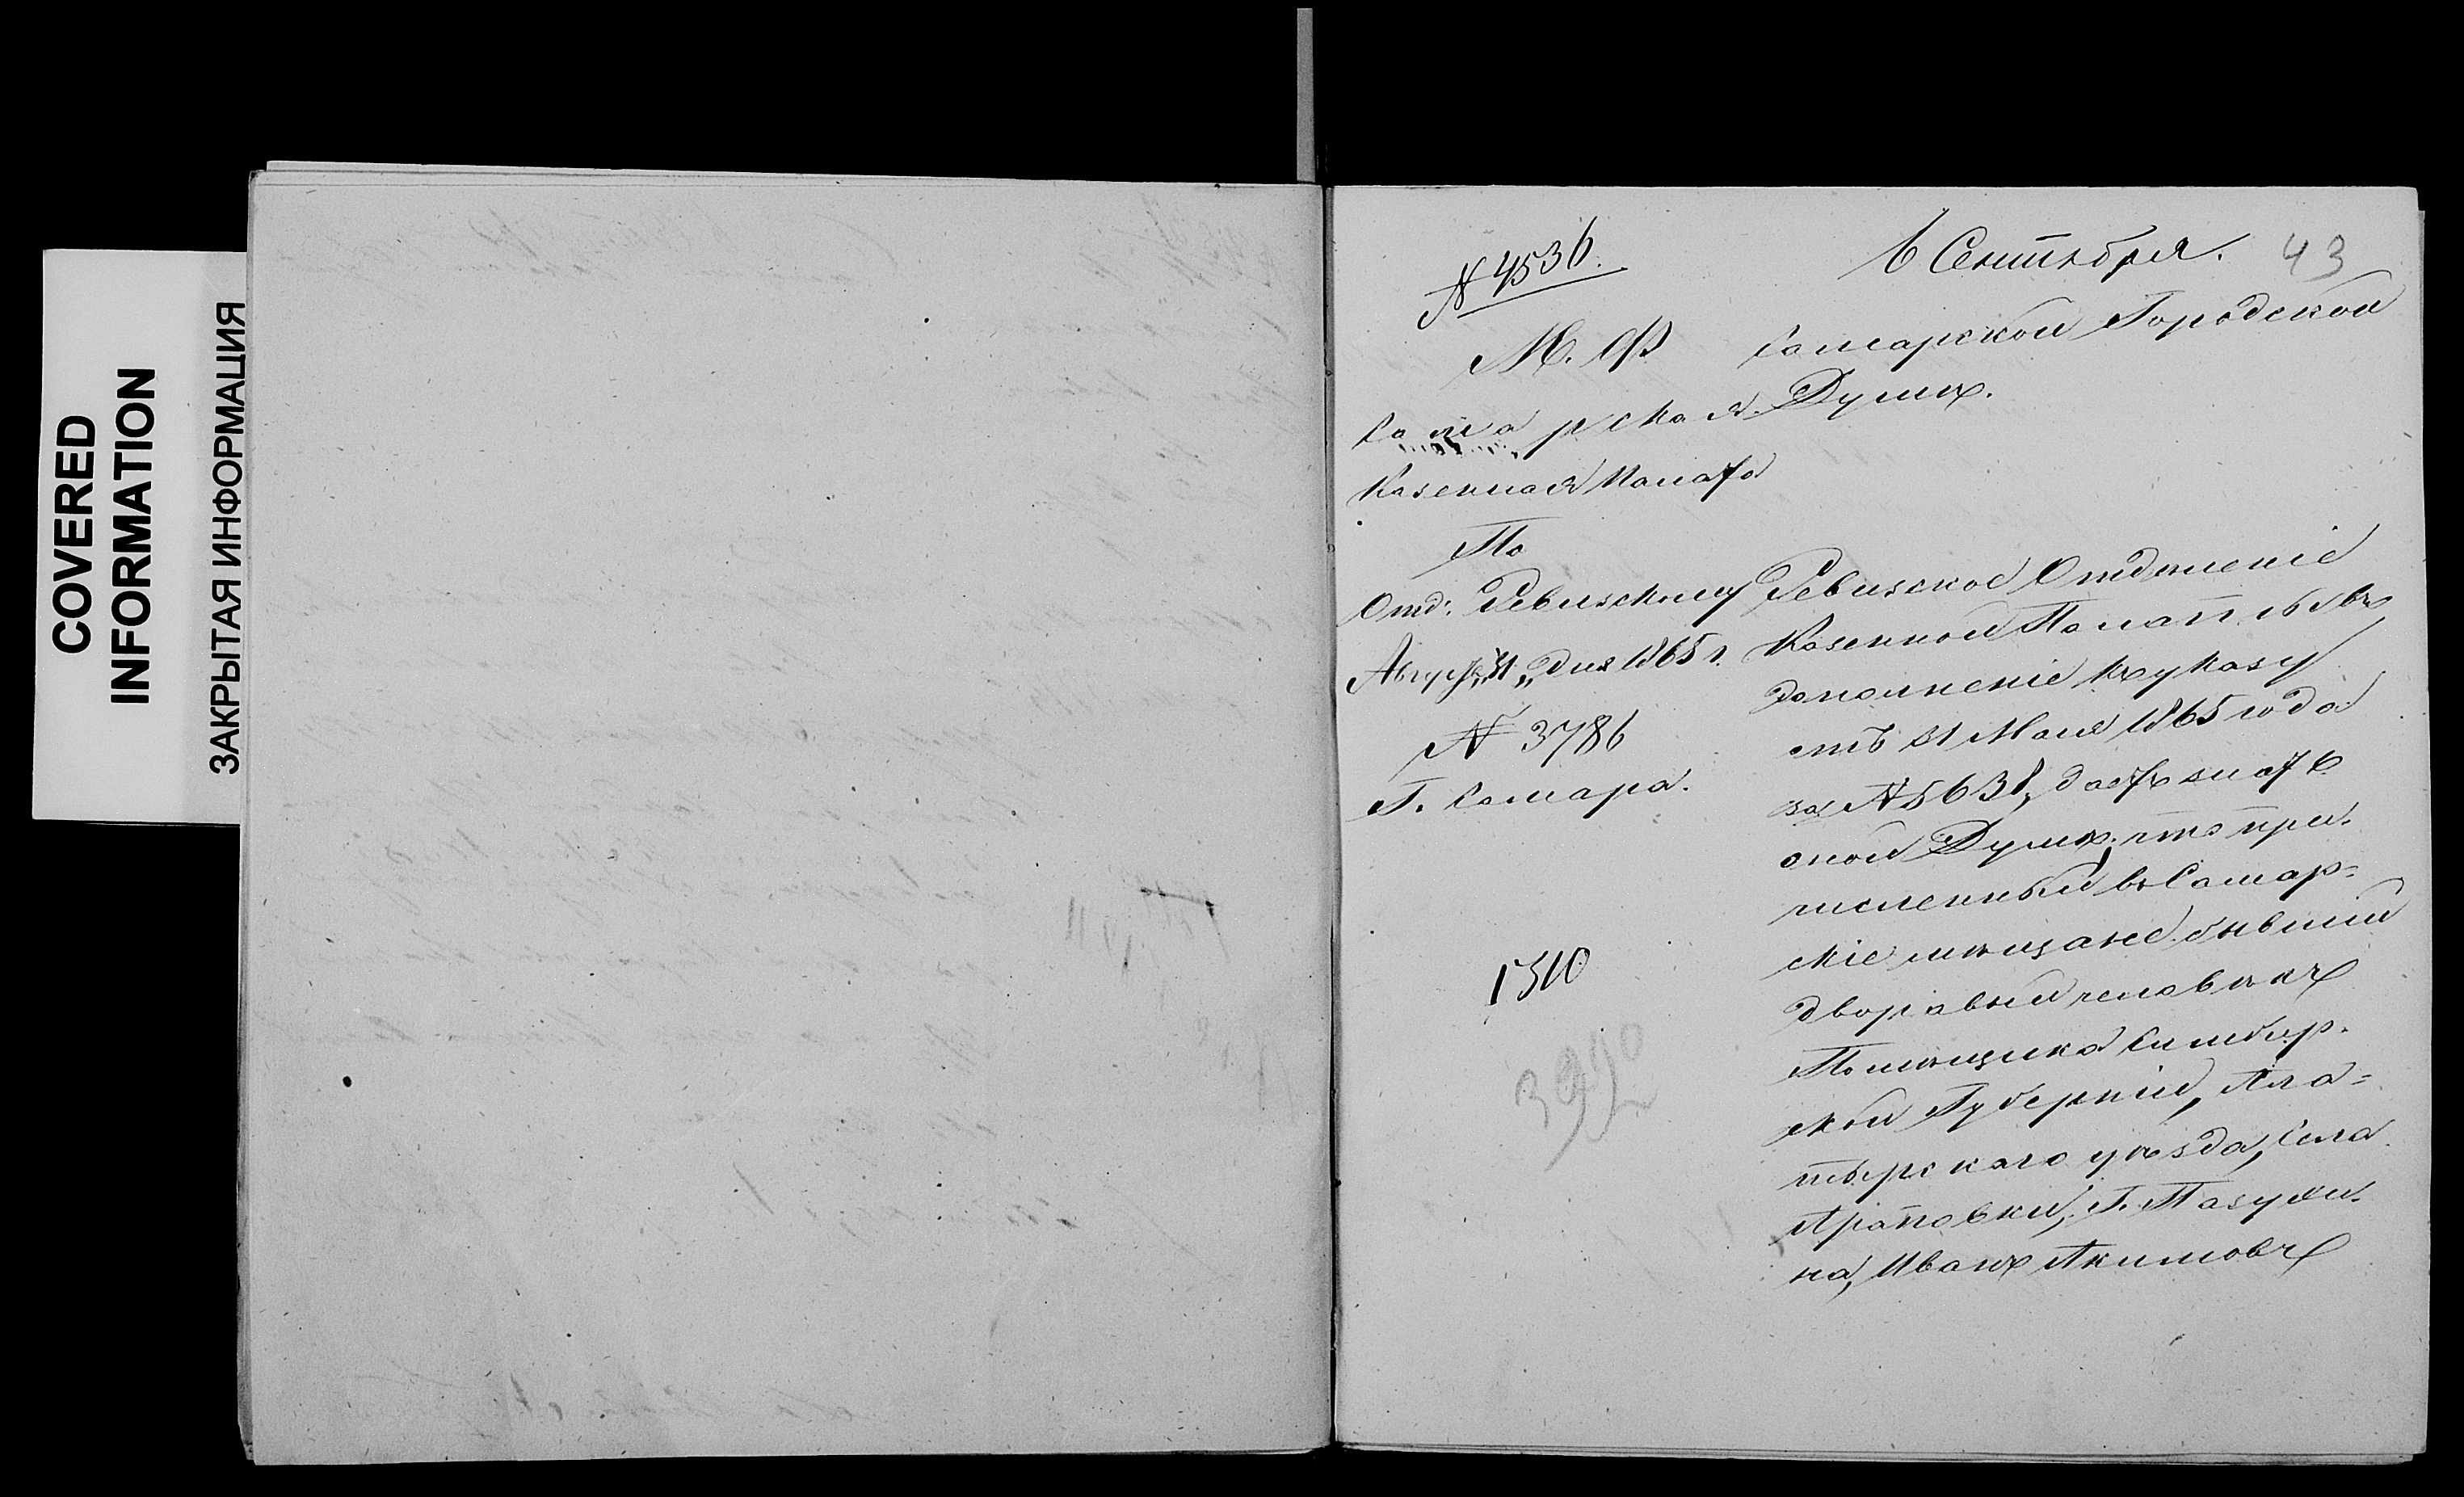 COVERED
INFORMATION
ЗАКРЫТАЯ ИНФОРМАЦИЯ
№ 4536.
6 Сентября.
43
М. Ф.
Самарская
Казенная Палата
По
Отд: Ревизскому
Августа „31„ дня 1865 г.
№ 3786
Г. Самара.
1510
3990
Самарской Городской
Думѣ.
Ревизское Отдѣленіе
Казенной Палаты въ
дополненіе къ указу
отъ 31 Мая 1865 года
за № 5638, даетъ знать
оной Думѣ, что при-
численный въ Самар-
скіе мѣщане бывшій
дворовый человѣкъ
Помѣщика Симбир-
ской Губерніи, Ала-
тырскаго уѣзда, Села
Араповки, Г. Пазухи-
на, Иванъ Акимовъ